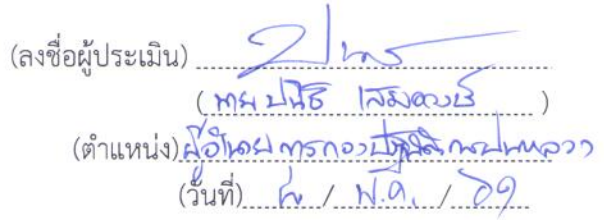 (ลงชื่อผู้ประเมิน)
(นายปนิธิ เสมอวงษ์)
(ตำแหน่ง) ผู้อำนวยการกองปฏิบัติการฝนหลวง
(วันที่) / พ.ค. / ๖๑